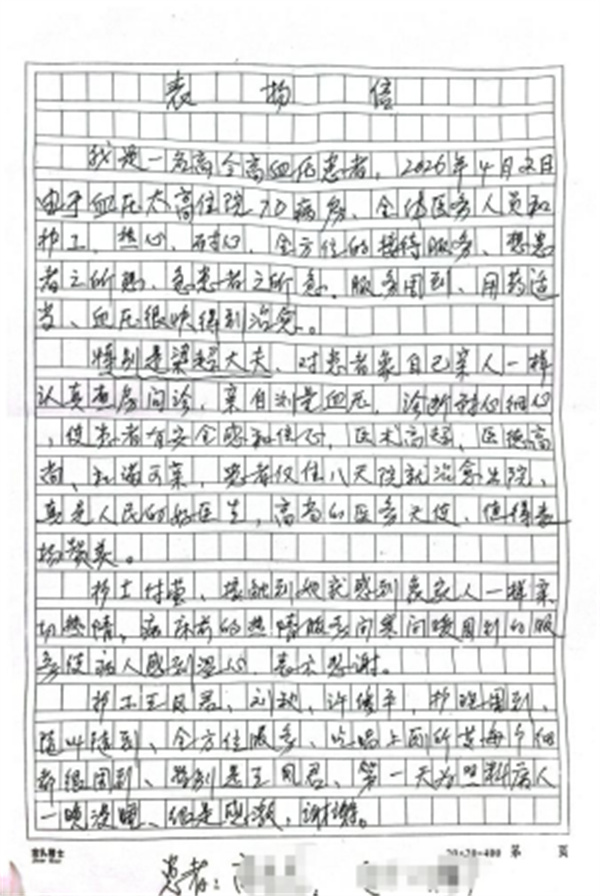 表扬信
我是一名高全高血压患者，2026年4月2日
由于血压太高住院70病房、全体医务人员和
护工、热心、耐心、全方位的接待服务、想患
者之所想、急患者之所急、服务周到、用药适
当、血压很快得到治愈。
特别是梁超大夫、对患者象自己亲人一样
认真查房问诊、亲自测量血压，诊断耐心细心
、使患者有安全感和信心，医术高超、医德高
尚、和蔼可亲，患者仅住八天院就治愈出院、
真是人民的好医生，高尚的医务天使、值得表
扬赞美。
护士付萤、接触到她就感到象家人一样亲
切热情，病床前的热情服务问寒问暖周到的服
务使病人感到温心、表示感谢。
护工王凤君、刘、许、护理周到、
随叫随到、全方位服务、吃喝上厕所等每个细
都很周到、特别是王凤君、第一天为照料病人
一晚没睡、很是感激，谢谢。
20×20=400 第 页
患者：